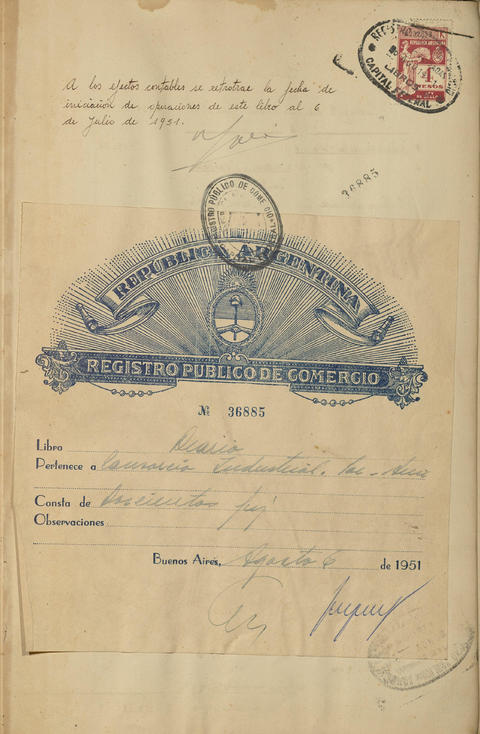 A los efectos contables se retrotrae la fecha de
iniciación de operaciones de este libro al 6
de Julio de 1951.
REPUBLICA ARGENTINA
PESOS
LIBROS
CAPITAL FEDERAL
36885
REGISTRO PÚBLICO DE COMERCIO
REPÚBLICA ARGENTINA
REGISTRO PUBLICO DE COMERCIO
№ 36885
Libro Diario
Pertenece a Consorcio Industrial. Soc. Anm
Consta de Doscientos
Observaciones
Buenos Aires, Agosto 6 de 1951